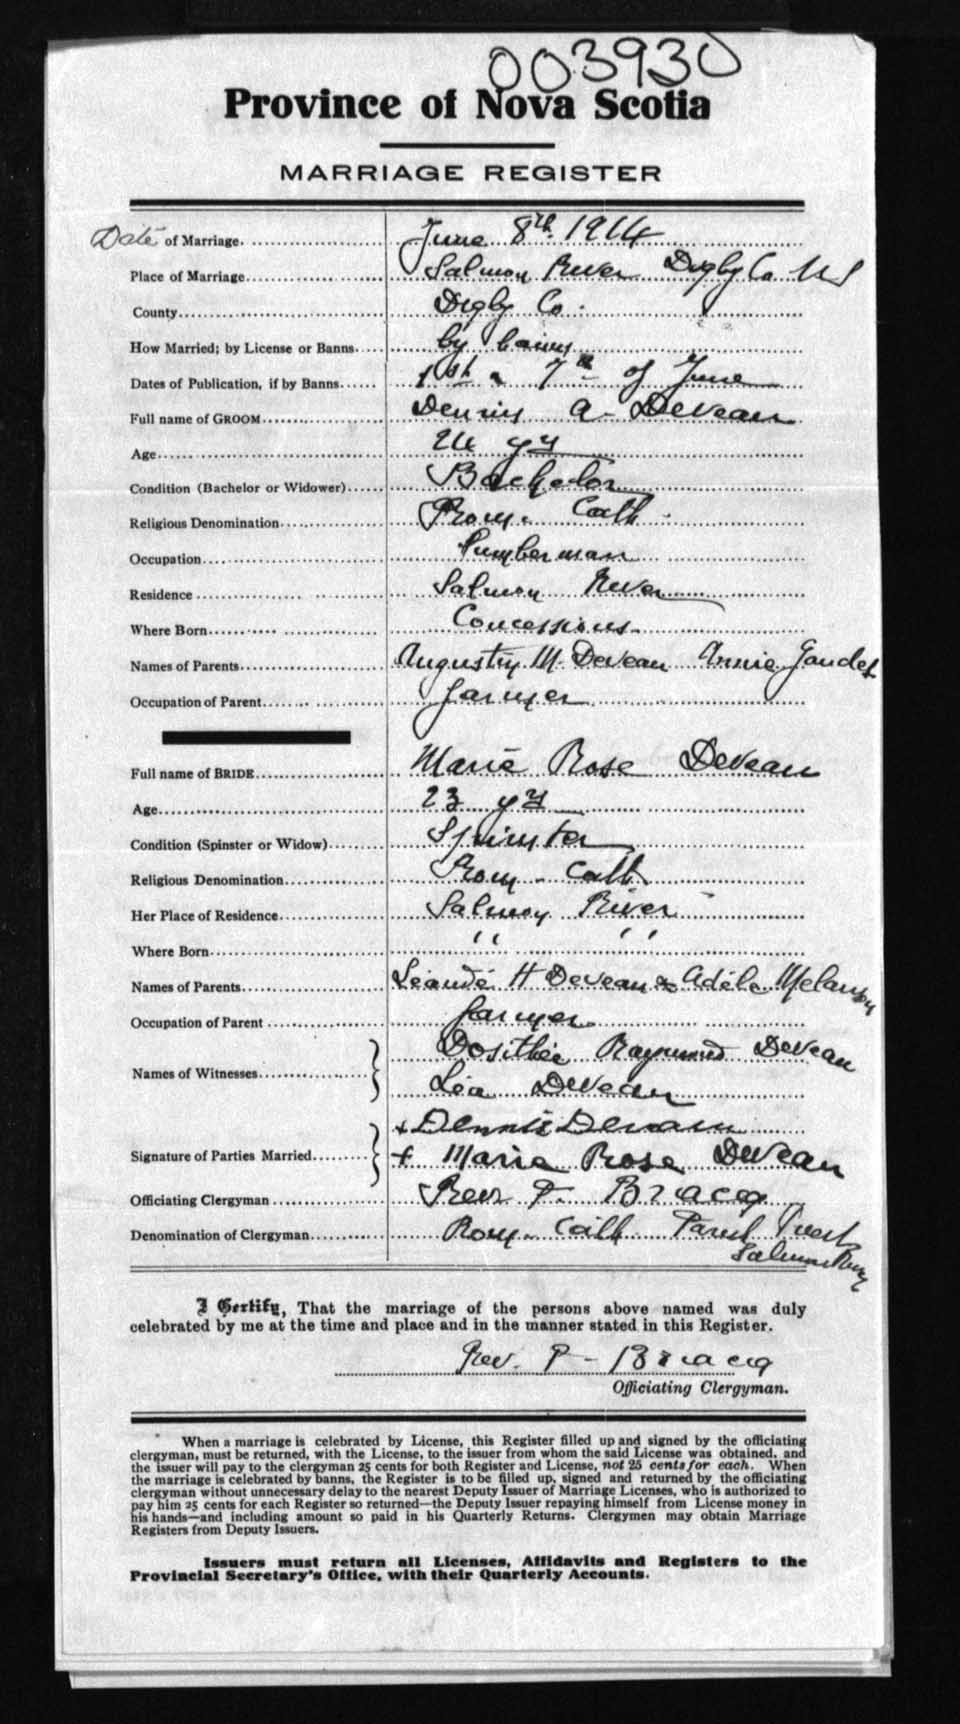 003930
Province of Nova Scotia
MARRIAGE REGISTER
Date of Marriage. June 8th 1914
Place of Marriage Salmon River Digby Co. N S
County Digby Co.
How Married; by License or Banns by banns
Dates of Publication, if by Banns 7th of June
Full name of GROOM Dennis A. DeVeau
Age yrs
Condition (Bachelor or Widower) Bachelor
Religious Denomination Rom. Cath.
Occupation Lumberman
Residence Salmon River
Where Born Concessions
Names of Parents Augustin M. DeVeau Annie Gaudet
Occupation of Parent farmer
Full name of BRIDE Marie Rose DeVeau
Age 23 yrs
Condition (Spinster or Widow) Spinster
Religious Denomination Rom. Cath
Her Place of Residence Salmon River
Where Born " "
Names of Parents Léandé H DeVeau & Adèle Melanson
Occupation of Parent farmer
Dosithée Raymond DeVeau
Names of Witnesses
Léa DeVeau
+ Dennis Deveau
Signature of Parties Married
+ Marie Rose DeVeau
Officiating Clergyman Rev P. Bracq
Denomination of Clergyman Rom. Cath Parish Priest
Salmon River
I Certify, That the marriage of the persons above named was duly
celebrated by me at the time and place and in the manner stated in this Register.
Rev. P - Bracq
Officiating Clergyman.
When a marriage is celebrated by License, this Register filled up and signed by the officiating
clergyman, must be returned, with the License, to the issuer from whom the said License was obtained, and
the issuer will pay to the clergyman 25 cents for both Register and License, not 25 cents for each. When
the marriage is celebrated by banns, the Register is to be filled up, signed and returned by the officiating
clergyman without unnecessary delay to the nearest Deputy Issuer of Marriage Licenses, who is authorized to
pay him 25 cents for each Register so returned—the Deputy Issuer repaying himself from License money in
his hands—and including amount so paid in his Quarterly Returns. Clergymen may obtain Marriage
Registers from Deputy Issuers.
Issuers must return all Licenses, Affidavits and Registers to the
Provincial Secretary's Office, with their Quarterly Accounts.